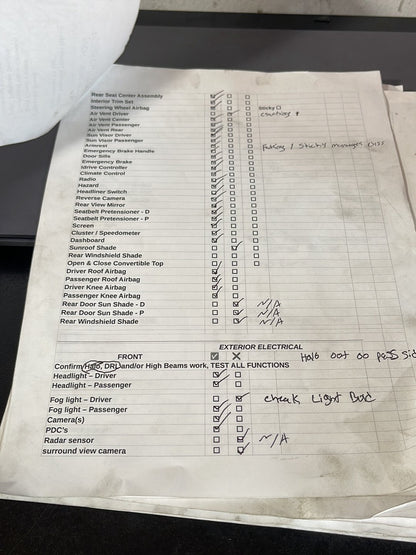 Rear Seat Center Assembly
Interior Trim Set
Steering Wheel Airbag Sticky
Air Vent Driver
Air Vent Center
Air Vent Passenger
Air Vent Rear
Sun Visor Driver
Sun Visor Passenger
Armrest
Emergency Brake Handle
Door Sills
Emergency Brake
Idrive Controller
Climate Control
Radio
Hazard
Headliner Switch
Reverse Camera
Rear View Mirror
Seatbelt Pretensioner - D
Seatbelt Pretensioner - P
Screen
Cluster / Speedometer
Dashboard
Sunroof Shade
Rear Windshield Shade
Open & Close Convertible Top
Driver Roof Airbag
Passenger Roof Airbag
Driver Knee Airbag
Passenger Knee Airbag
Rear Door Sun Shade - D N/A
Rear Door Sun Shade - P N/A
Rear Windshield Shade N/A
EXTERIOR ELECTRICAL
FRONT Halo out on pass sid
Confirm Halo, DRL and/or High Beams work, TEST ALL FUNCTIONS
Headlight – Driver
Headlight – Passenger
Fog light – Driver cheak Light
Fog light – Passenger
Camera(s)
PDC's
Radar sensor N/A
surround view camera